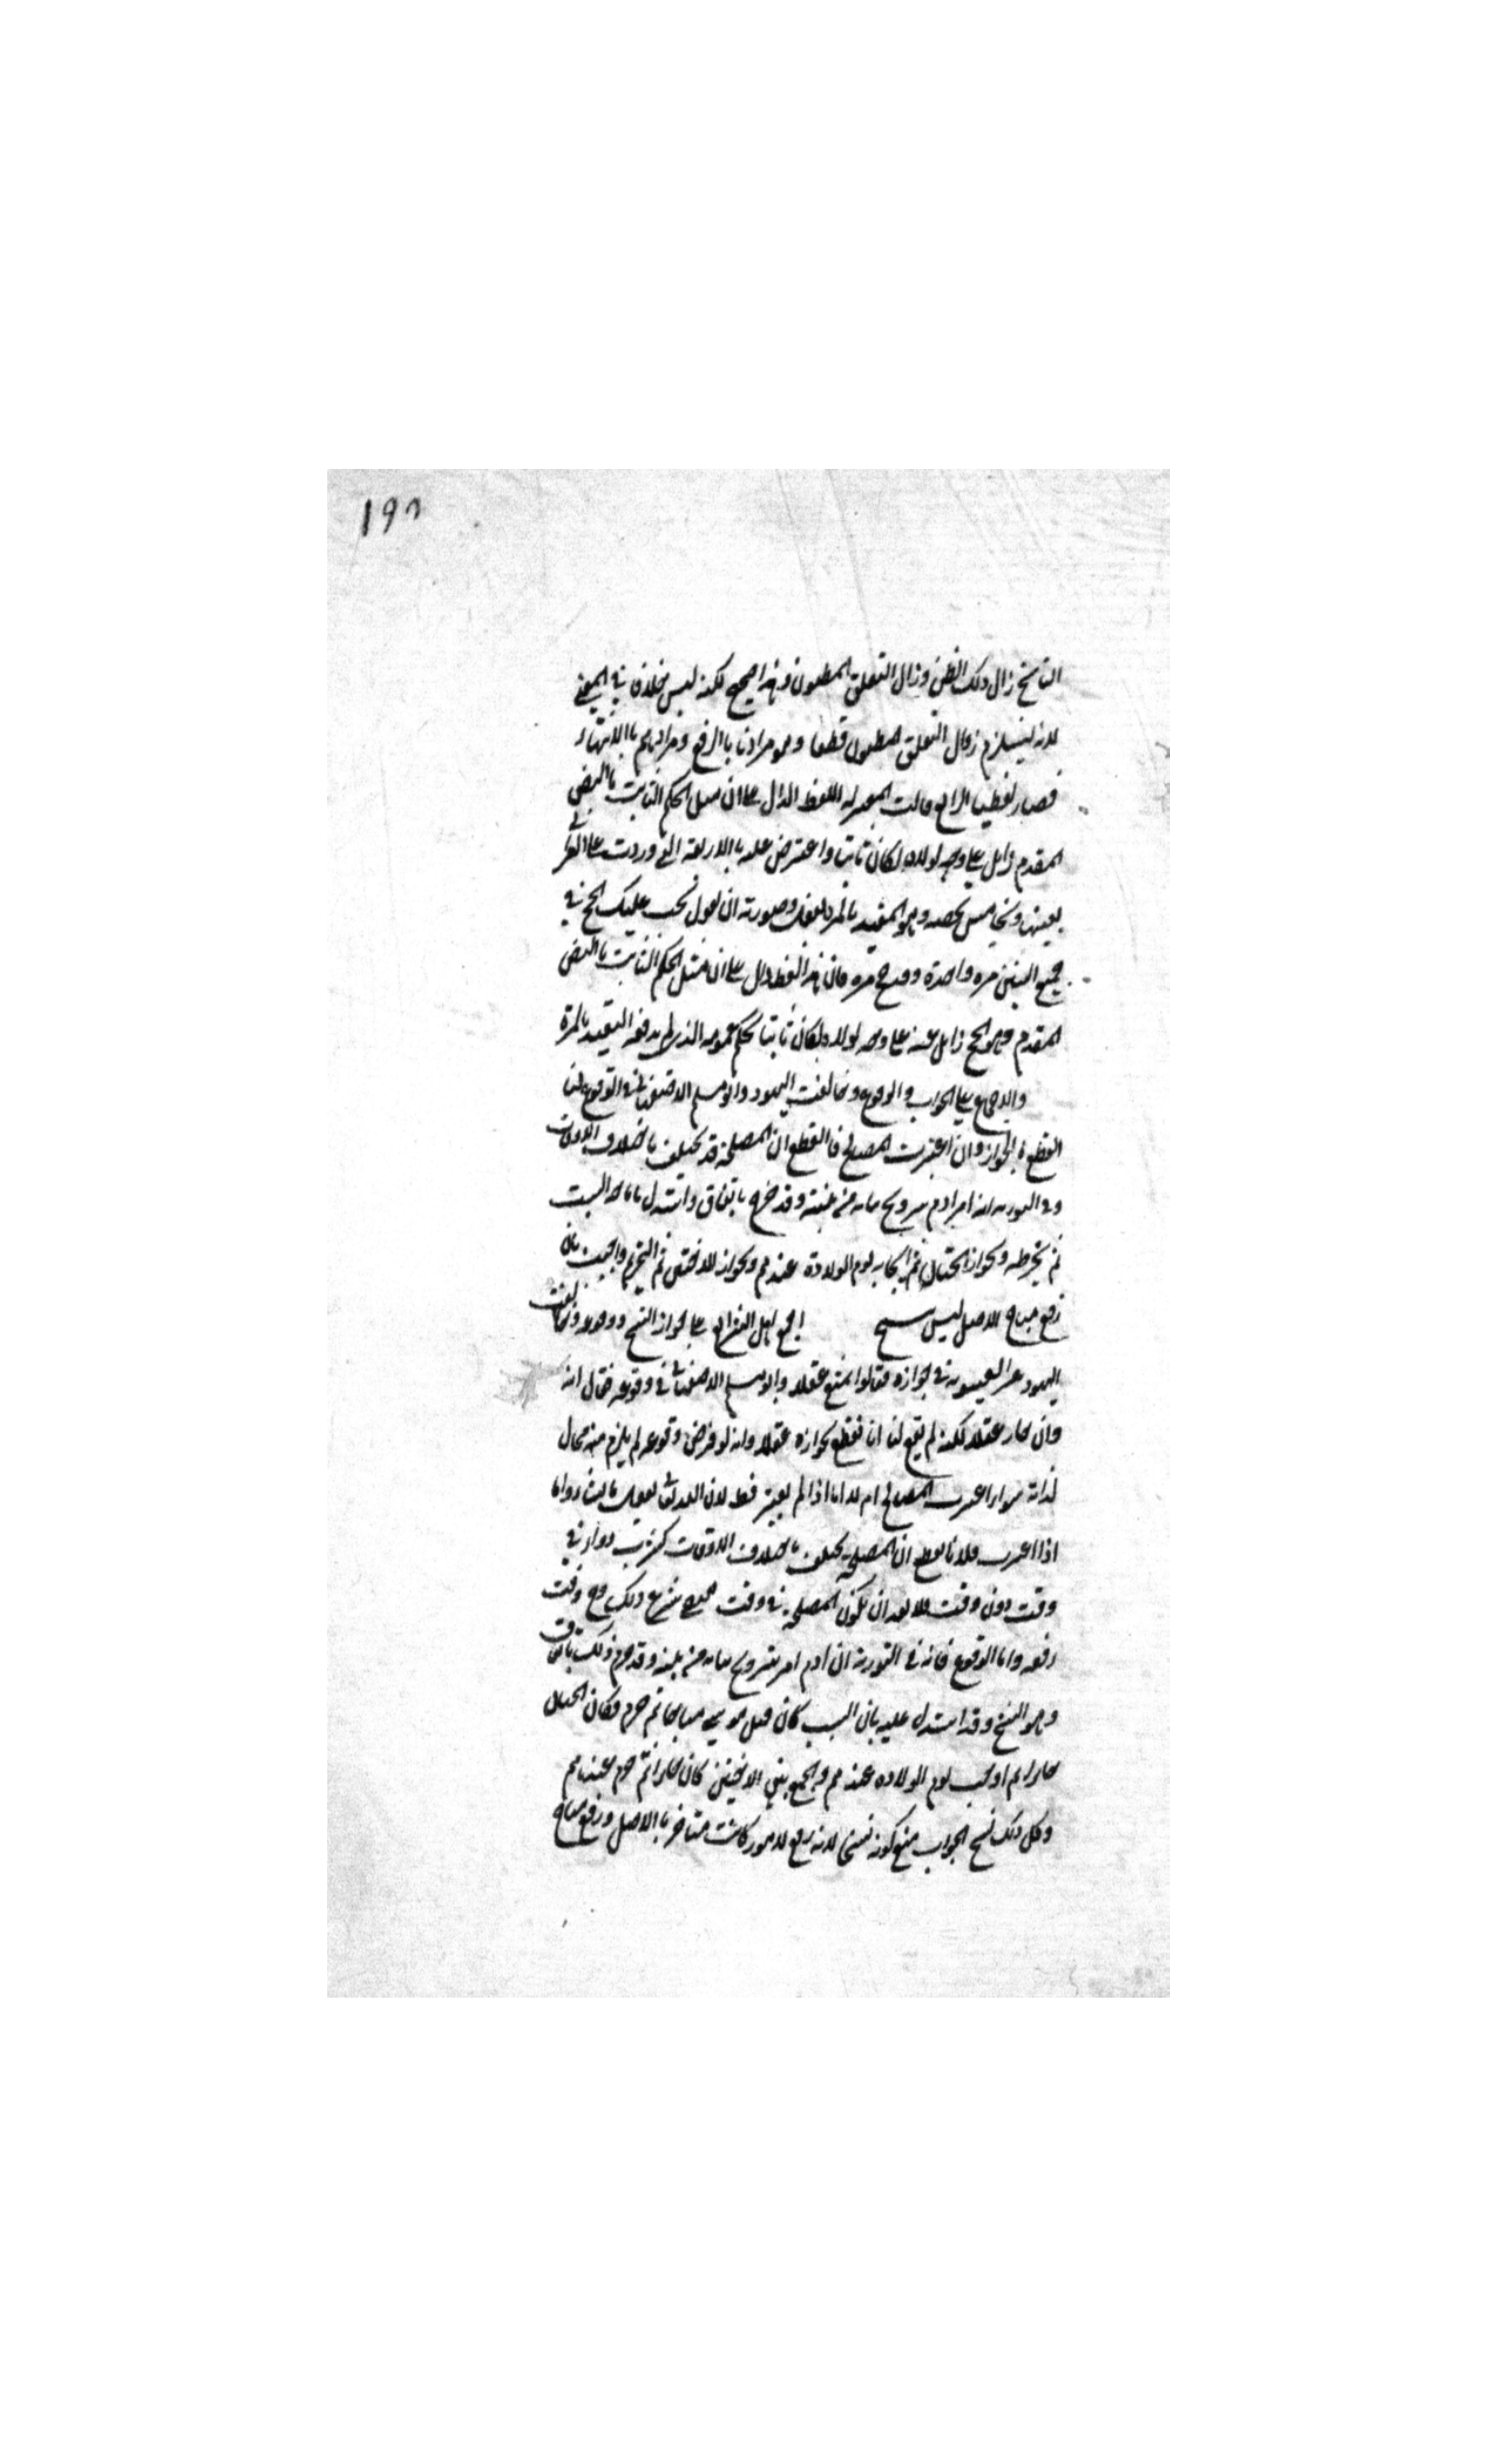 ١٩٢
الناسخ زال ذلك الظن وزال التعلق المظنون وهذا صحيح لكنه ليس بخلاف في المعنى
لانه ليستلزم زوال التعلق المظنون قطعا وهو مرادنا باالرفع ومرادهم باالانتهاء
فصار لفظيا الرابع قالت المعتزلة اللفظ الدال على ان مثل الحكم الثابت باالنص
المقدم زايل على وجه لولاه لكان ثابتا واعترض عليه باالاربعة التي وردت على الغزالي
بعينها وبخامس يخصه وهو المقيد بالمرة بفعل وصورته ان يقول يجب عليك الحج في
جميع السنين مرة واحدة وقد حج مرة فان هذا اللفظ دال على ان مثل الحكم الثابت باالنص
المقدم وهو الحج زايل عنه على وجه لولاه لكان ثابتا بحكم عمومه الذى لم يدفعه التقييد بالمرة
والاجماع على الجواز والوقوع وخالفت اليهود وابو مسلم الاصفهانى في الوقوع لنا
القطع باالجواز وان اعتبرت المصالح فا القطع ان المصلحة قد تختلف باختلاف الاوقات
وفى التورية انه امر ادم بتزويج بناته من بنيه وقد حرم باتفاق واستدل باباحة السبت
ثم تحريمه وبجواز الختان ثم ايجابه يوم الولادة عندهم وبجواز الاختين ثم التحريم واجيب بان
رفع مباح الاصل ليس بنسخ اجمع اهل الشرايع على جواز النسخ ووقوعه وخالفت
اليهود غير العيسوية في جوازه فقالوا يمتنع عقلا وابو مسلم الاصفهانى في وقوعه فقال انه
وان جاز عقلا لكنه لم يقع لنا انا نقطع بجوازه عقلا وانه لو فرض وقوعه لم يلزم منه محال
لذاته سواء اعتبرت المصالح ام لا اما اذا لم يعتبر فظ لان الله تعالى يفعل ما يشاء واما
اذا اعتبرت فلانا نقطع ان المصلحة تختلف باختلاف الاوقات كشرب دواء في
وقت دون وقت فلا بعد ان تكون المصلحة في وقت تقتضى شرع ذلك وفى وقت
رفعه واما الوقوع فانه في التورية ان ادم امر بتزويج بناته من بنيه وقد حرم ذلك باتفاق
وهو النسخ وقد استدل عليه بان السبت كان قبل موسى مباحا ثم حرم وكان الختان
جايزا ثم اوجب يوم الولاده عندهم والجمع بين الاختين كان جايزا ثم حرم عندهم
وكل ذلك نسخ الجواب منع كونه نسخا لانه رفع لامور كانت مباحة باالاصل ورفع مباح